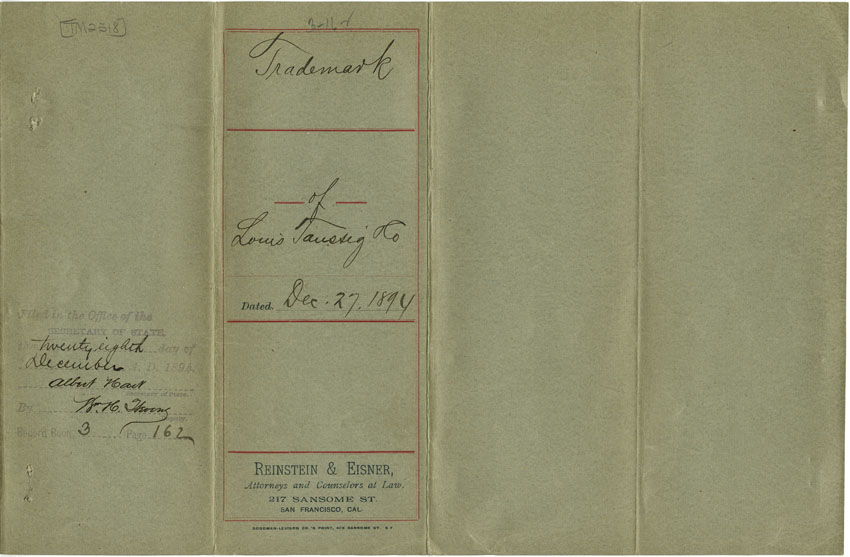 [TM2518]
3-162
Trademark
of
Louis Taussig & Co
Dated. Dec. 27, 1894
Filed in the Office of the
SECRETARY OF STATE
the twenty eighth day of
December A. D. 1894
Albert Hart
Secretary of State.
By W. H.
Deputy.
Record Book 3 Page 162
REINSTEIN & EISNER,
Attorneys and Counselors at Law.
217 SANSOME ST.
SAN FRANCISCO, CAL.